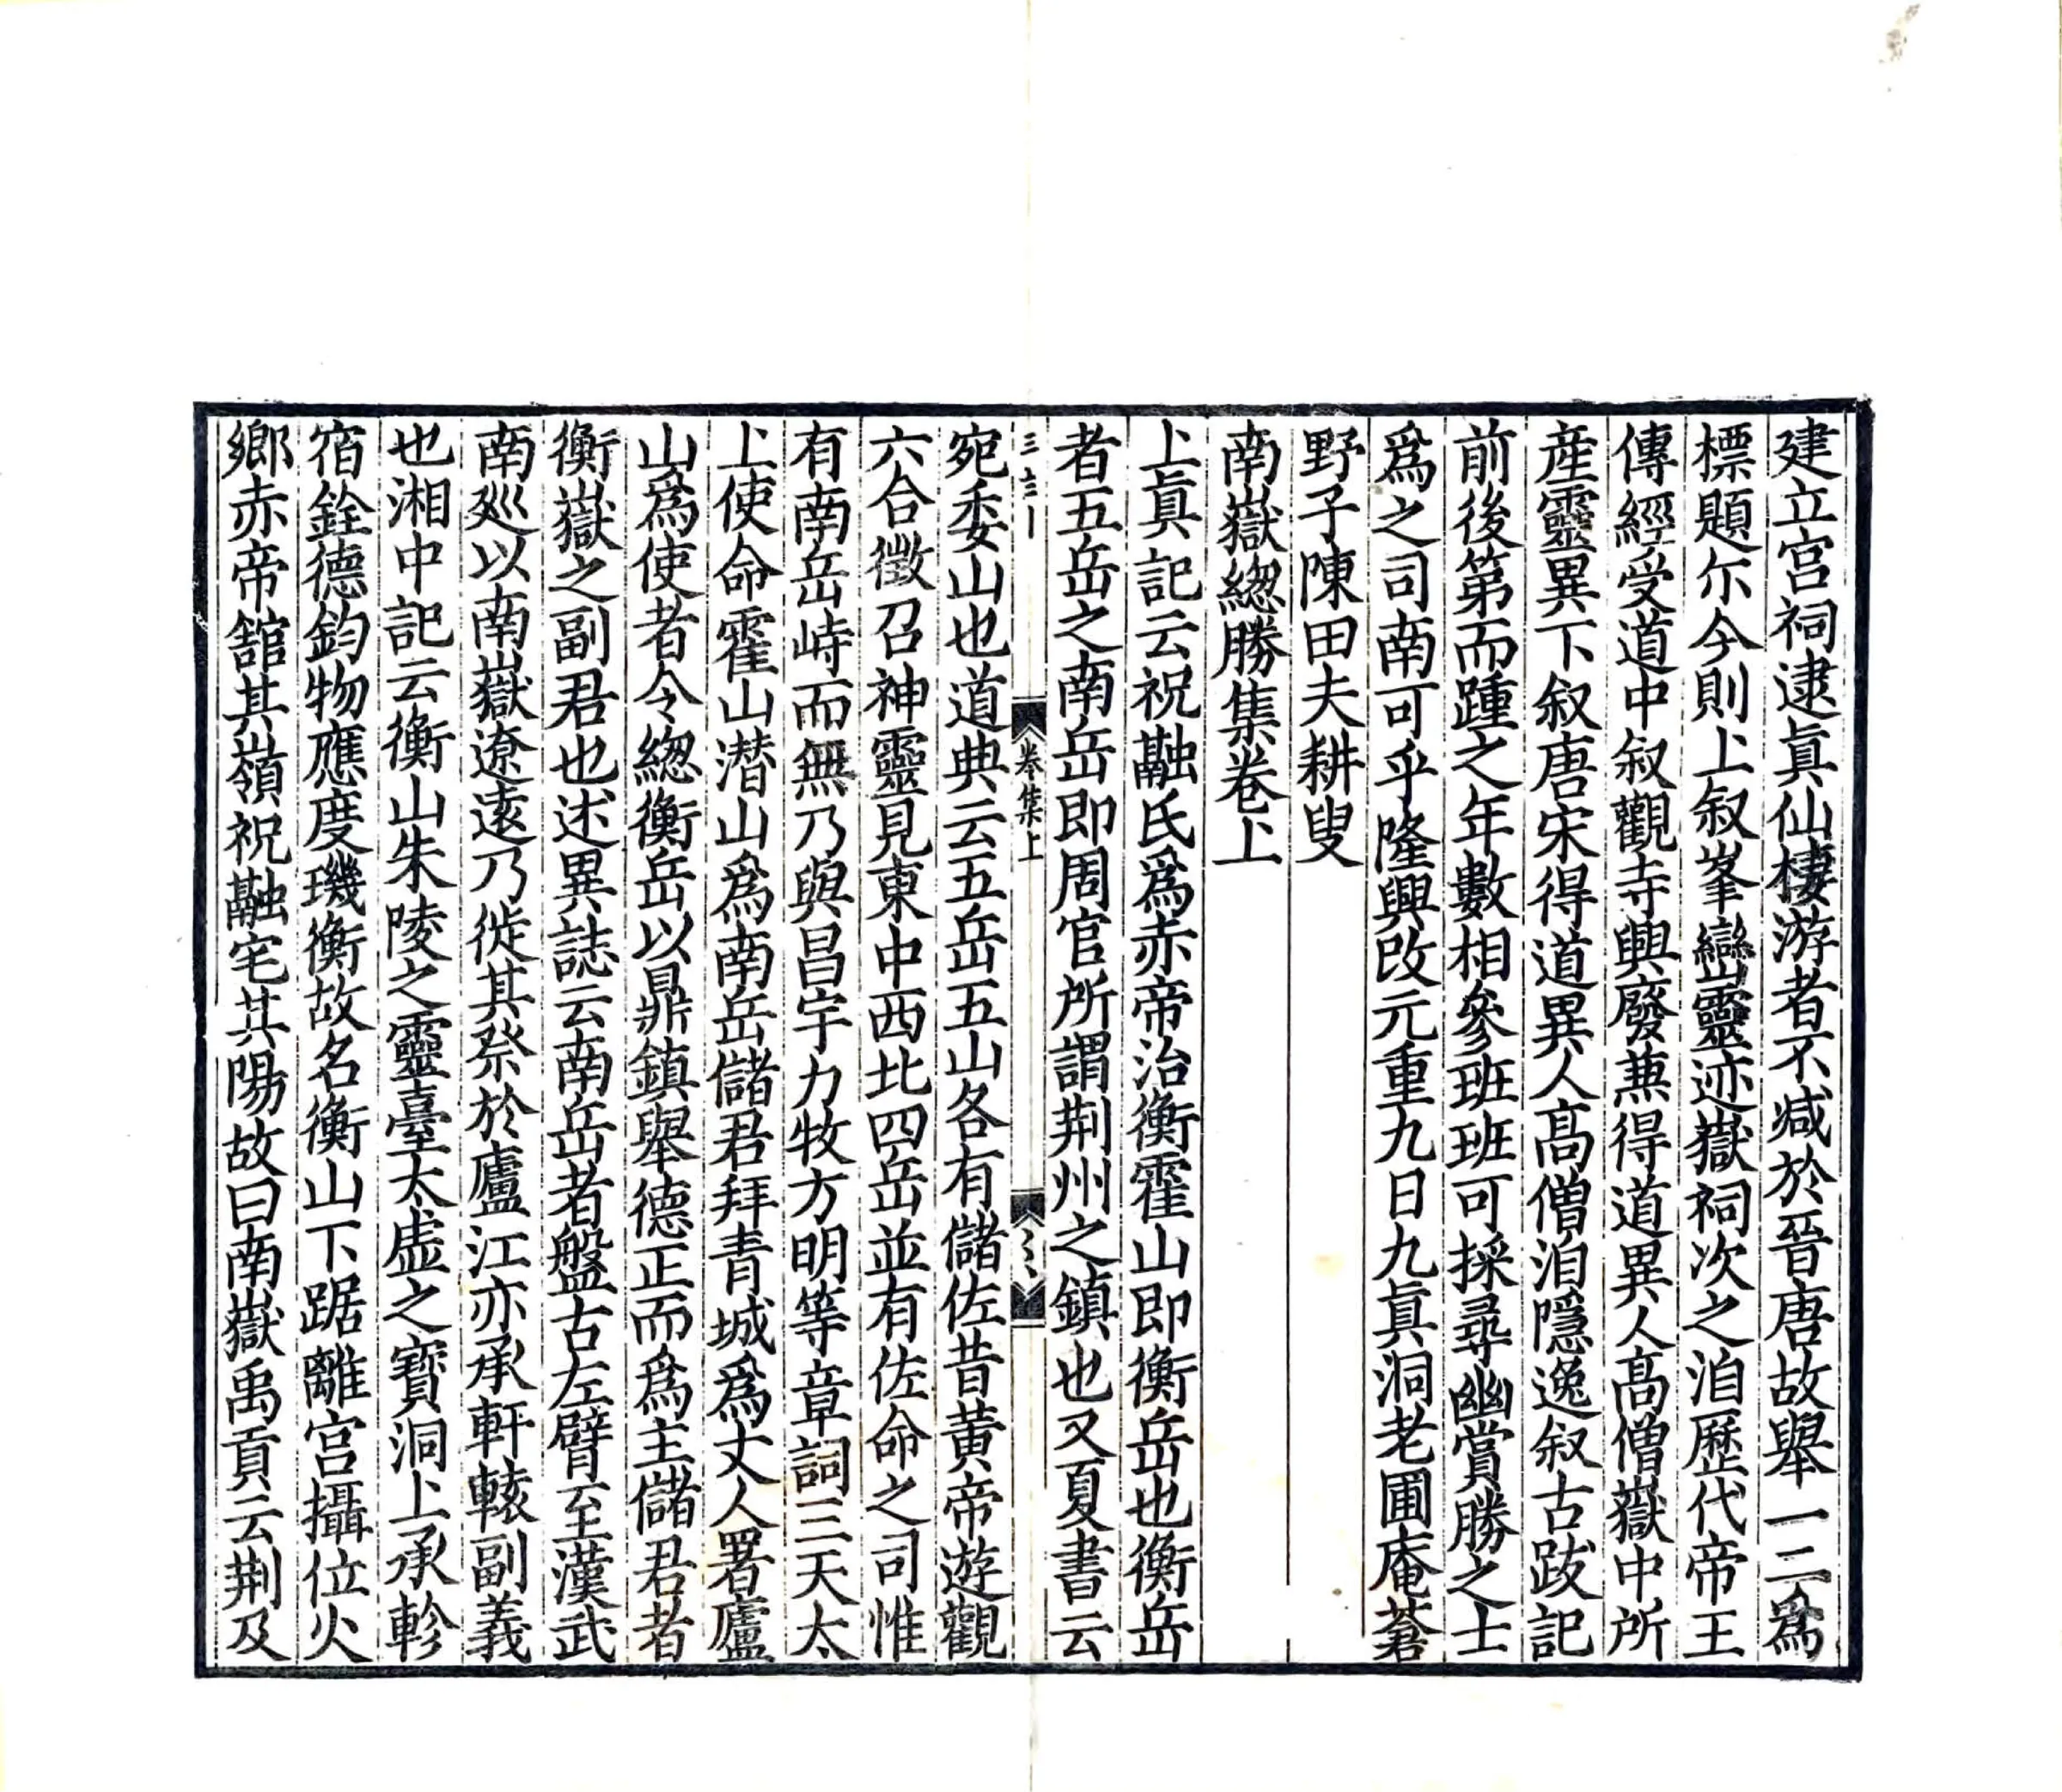 建立宫祠逮眞仙棲游者不減於晉唐故舉一二爲
標題尓今則上叙峯巒靈迹嶽祠次之洎歷代帝王
傳經受道中叙觀寺興廢兼得道異人髙僧嶽中所
産靈異下叙唐宋得道異人髙僧洎隱逸叙古跋記
前後第而踵之年數相叅班班可採尋幽賞勝之士
爲之司南可乎隆興改元重九日九眞洞老圃庵蒼
野子陳田夫耕叟
南嶽緫勝集卷上
上眞記云祝融氏爲赤帝治衡霍山即衡岳也衡岳
者五岳之南岳即周官所謂荆州之鎮也又夏書云
卷集上
宛委山也道典云五岳五山各有儲佐昔黄帝遊觀
六合徵召神靈見東中西北四岳並有佐命之司惟
有南岳峙而無乃與昌宇力牧方明等章詞三天太
上使命霍山潜山爲南岳儲君拜青城爲丈人署廬
山爲使者令緫衡岳以鼎鎮舉德正而爲主儲君者
衡嶽之副君也述異誌云南岳者盤古左臂至漢武
南巡以南嶽遼逺乃徙其祭於廬江亦承軒轅副義
也湘中記云衡山朱陵之靈臺太虚之寶洞上承軫
宿銓德鈞物應度璣衡故名衡山下踞離宫攝位火
鄉赤帝舘其嶺祝融宅其陽故曰南嶽禹貢云荆及